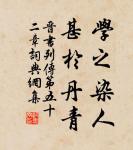 學之染人
甚於丹青
晉書列傳第五十
二章詞典網集